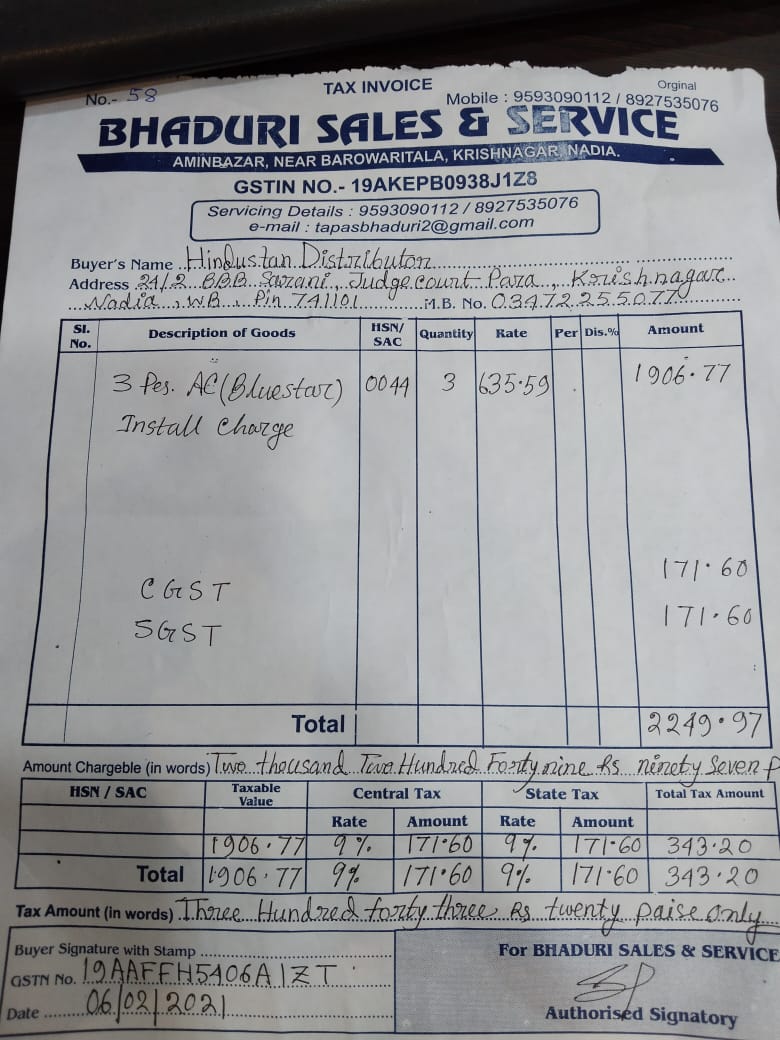 No.- 58
TAX INVOICE
Orginal
Mobile : 9593090112 / 8927535076
BHADURI SALES & SERVICE
AMINBAZAR, NEAR BAROWARITALA, KRISHNAGAR, NADIA.
GSTIN NO.- 19AKEPB0938J1Z8
Servicing Details : 9593090112 / 8927535076
e-mail : tapasbhaduri2@gmail.com
Buyer's Name Hindustan Distributor
Address 24/2 BBB Sarani, Judge court Para, Krishnagar
Nadia, WB, Pin 741101 M.B. No. 03472255077
Sl. No. Description of Goods HSN/ SAC Quantity Rate Per Dis.% Amount
3 Pes. AC (Bluestar) 0044 3 635.59 1906.77
Install Charge
CGST 171.60
SGST 171.60
Total 2249.97
Amount Chargeble (in words) Two thousand Two Hundred Forty nine Rs ninety Seven P
HSN / SAC Taxable Value Central Tax State Tax Total Tax Amount
Rate Amount Rate Amount
1906.77 9% 171.60 9% 171.60 343.20
Total 1906.77 9% 171.60 9% 171.60 343.20
Tax Amount (in words) Three Hundred forty three Rs twenty paise only
Buyer Signature with Stamp
For BHADURI SALES & SERVICE
GSTN No. 19AAFFH5406A1ZT
Date 06/02/2021
Authorised Signatory